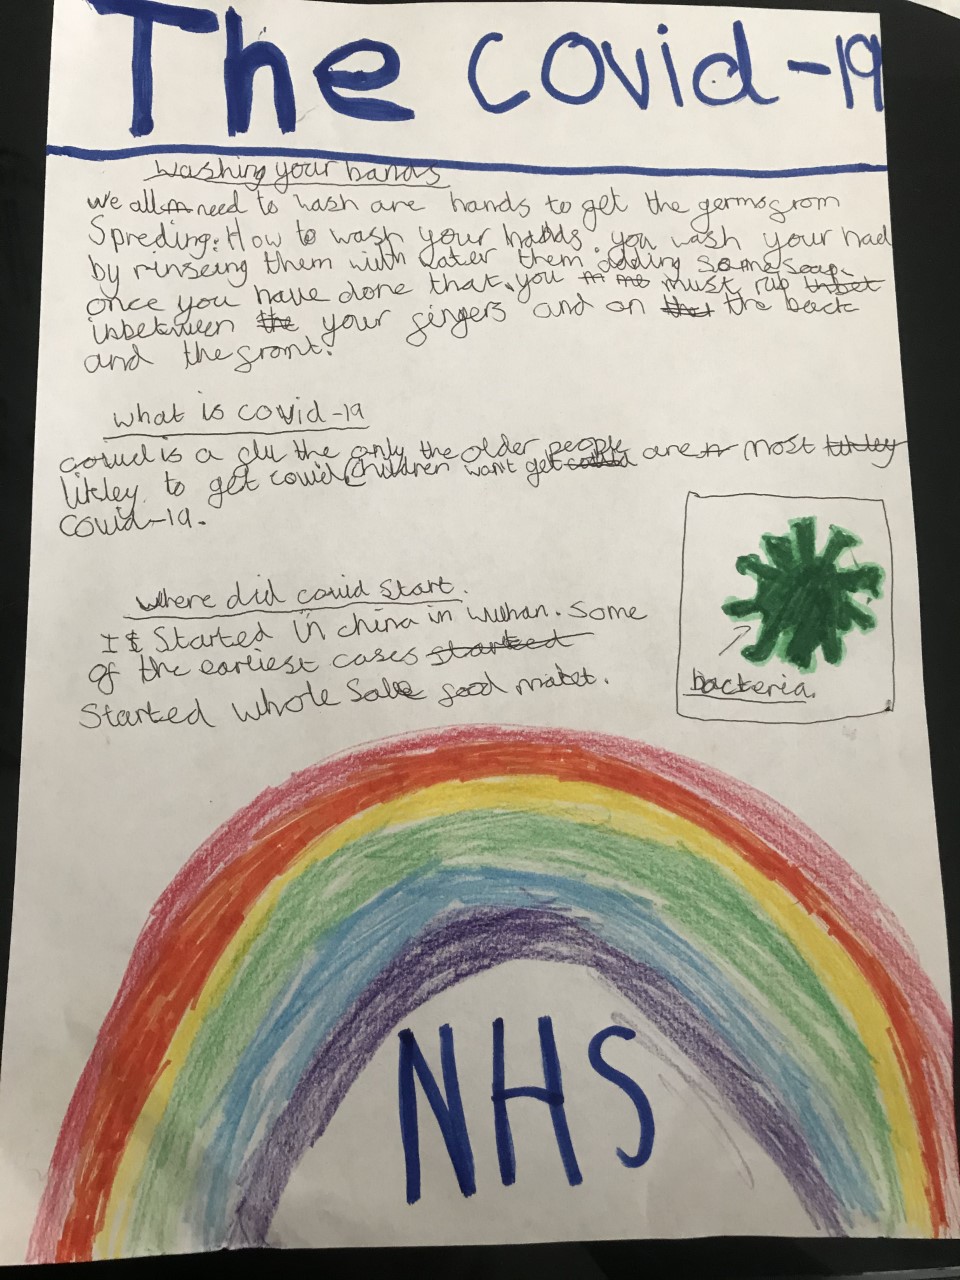 The covid-19
washing your hands
we all need to wash are hands to get the germs from
Spreding. How to wash your hands. you wash your had
by rinseing them with water them adding some soap.
once you have done that, you must rub
inbetween your fingers and on the back
and the front.
what is covid-19
covid is a flu the only the older people are most
likley to get covid children wan't get
covid-19.
where did covid start.
It Started in china in wuhan. Some
of the earliest cases
Started whole Sale food
bacteria.
NHS